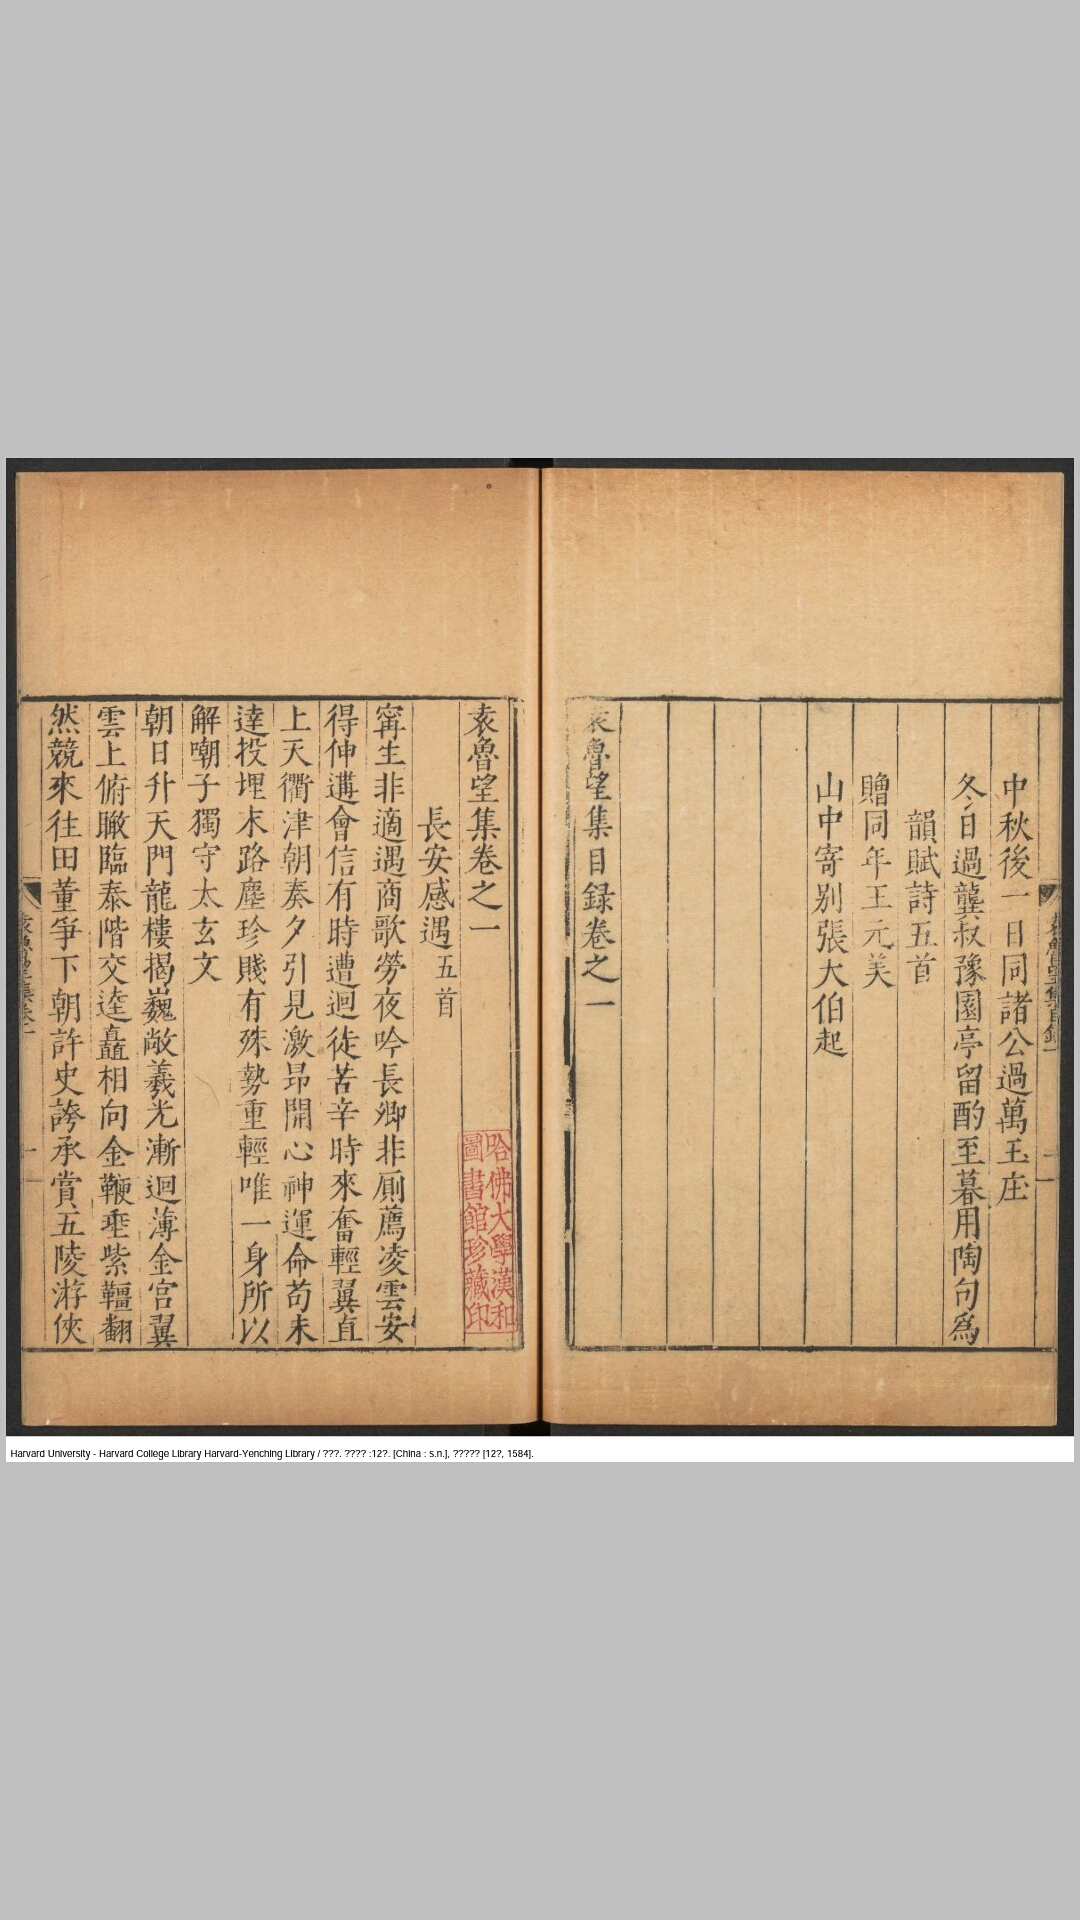 中秋後一日同諸公過萬玉庄
冬日過龔叔豫園亭留酌至暮用陶句為
韻賦詩五首
贈同年王元美
山中寄别張大伯起
袁魯望集目録卷之一
袁魯望集卷之一
長安感遇五首
甯生非適遇商歌勞夜吟長卿非厠薦凌雲安
得伸遘會信有時遭迴徒苦辛時來奮輕翼直
上天衢津朝奏夕引見激昂開心神運命苟未
達投埋末路塵珍賤有殊勢重輕唯一身所以
解嘲子獨守太玄文
朝日升天門龍樓揭巍敞羲光漸迴薄金宫翼
雲上俯瞰臨泰階交逵矗相向金鞭乖紫韁翻
然競來往田董爭下朝許史誇承賞五陵游俠
哈佛大學漢和
圖書館珍藏印
Harvard University - Harvard College Library Harvard-Yenching Library / ???. ???? :12?. [China : s.n.], ????? [12?, 1584].